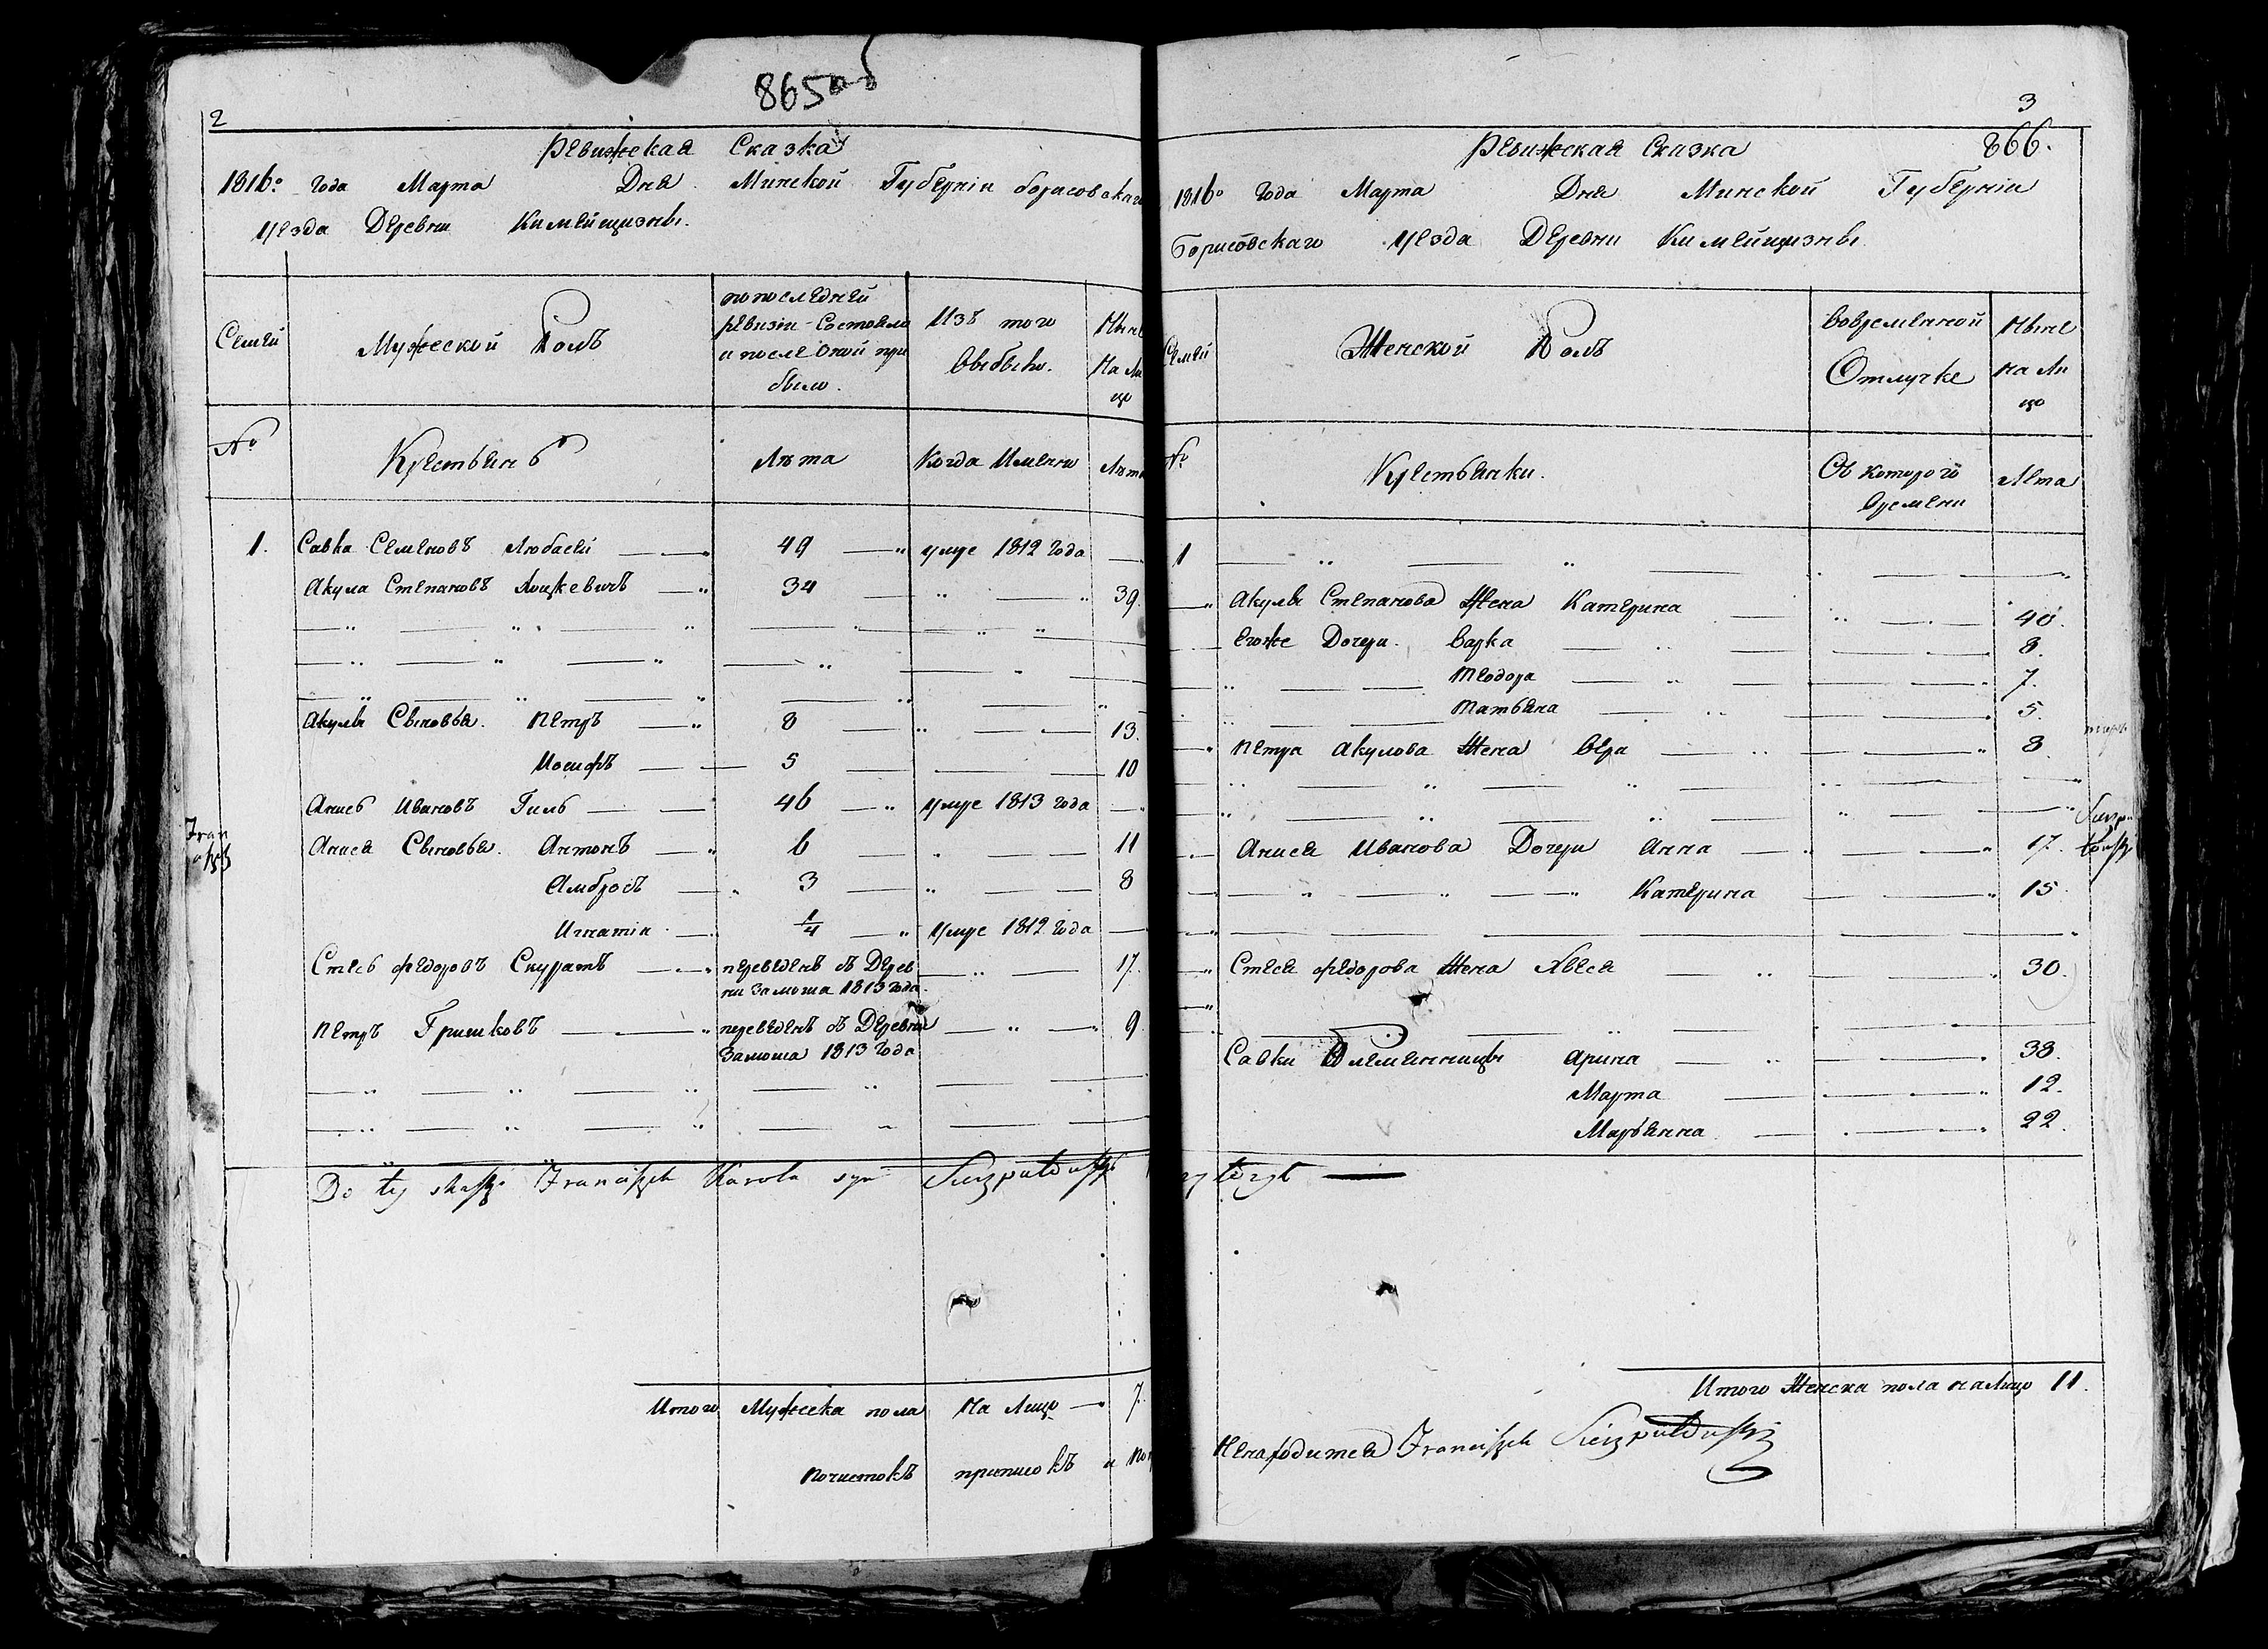 865 об
2
Ревижская Сказка
1816го года Марта Дня Минской Губерніи борисовскаго
уезда Деревни Кимейщизны.
Семей
Мужеской Полъ
попоследней
ревизіи Состояло
и после оной при
было.
Изъ того
выбыло.
Ныне
На Ли
цо
№
Крестьянъ
Лѣта
Когда Имянно
Лѣта
1. Савка Семеновъ 49 умре 1812 года
Акула Степановъ 34 39.
Акулы Сыновья. Петръ 8 13.
Иосифъ 5 10
Анисъ Ивановъ Гиль 46 умре 1813 года
Аниса Сыновья. Антонъ 6 11
Амбросъ 3 8
Игнатіи 1/4 умре 1812 года
Стесь Федоровъ Скуратъ переведенъ съ Дерев 17.
ни Замоша 1813 года.
Петръ Гришковъ переведенъ съ Деревни 9
Замоша 1813 года
Do tey skaski Franciszek Karola syn
Итого Мужеска пола На Лицо 7.
почистокъ приписокъ и
3
866.
Ревижская Сказка
1816го года Марта Дня Минской Губерніи
Борисовскаго уезда Деревни Кимейщизны
Семей
Женской Полъ
вовременной
Отлучке
Ныне
на Ли
цо
№
Крестьянки.
Съ которого
времени
Лета
1
Акулы Степанова Жена Катерина 40.
Егоже Дочери. Варка 8.
Теодора 7.
Татьяна 5.
Петра Акулова Жена Вера 8
Аниса Иванова Дочери Анна 17.
Катерина 15
Стеся Федорова Жена 30.
Савки Племянницы Арина 38.
Марта 12.
Марьянна 22.
Итого Женска пола налицо 11.
Ненаходится Franciszek